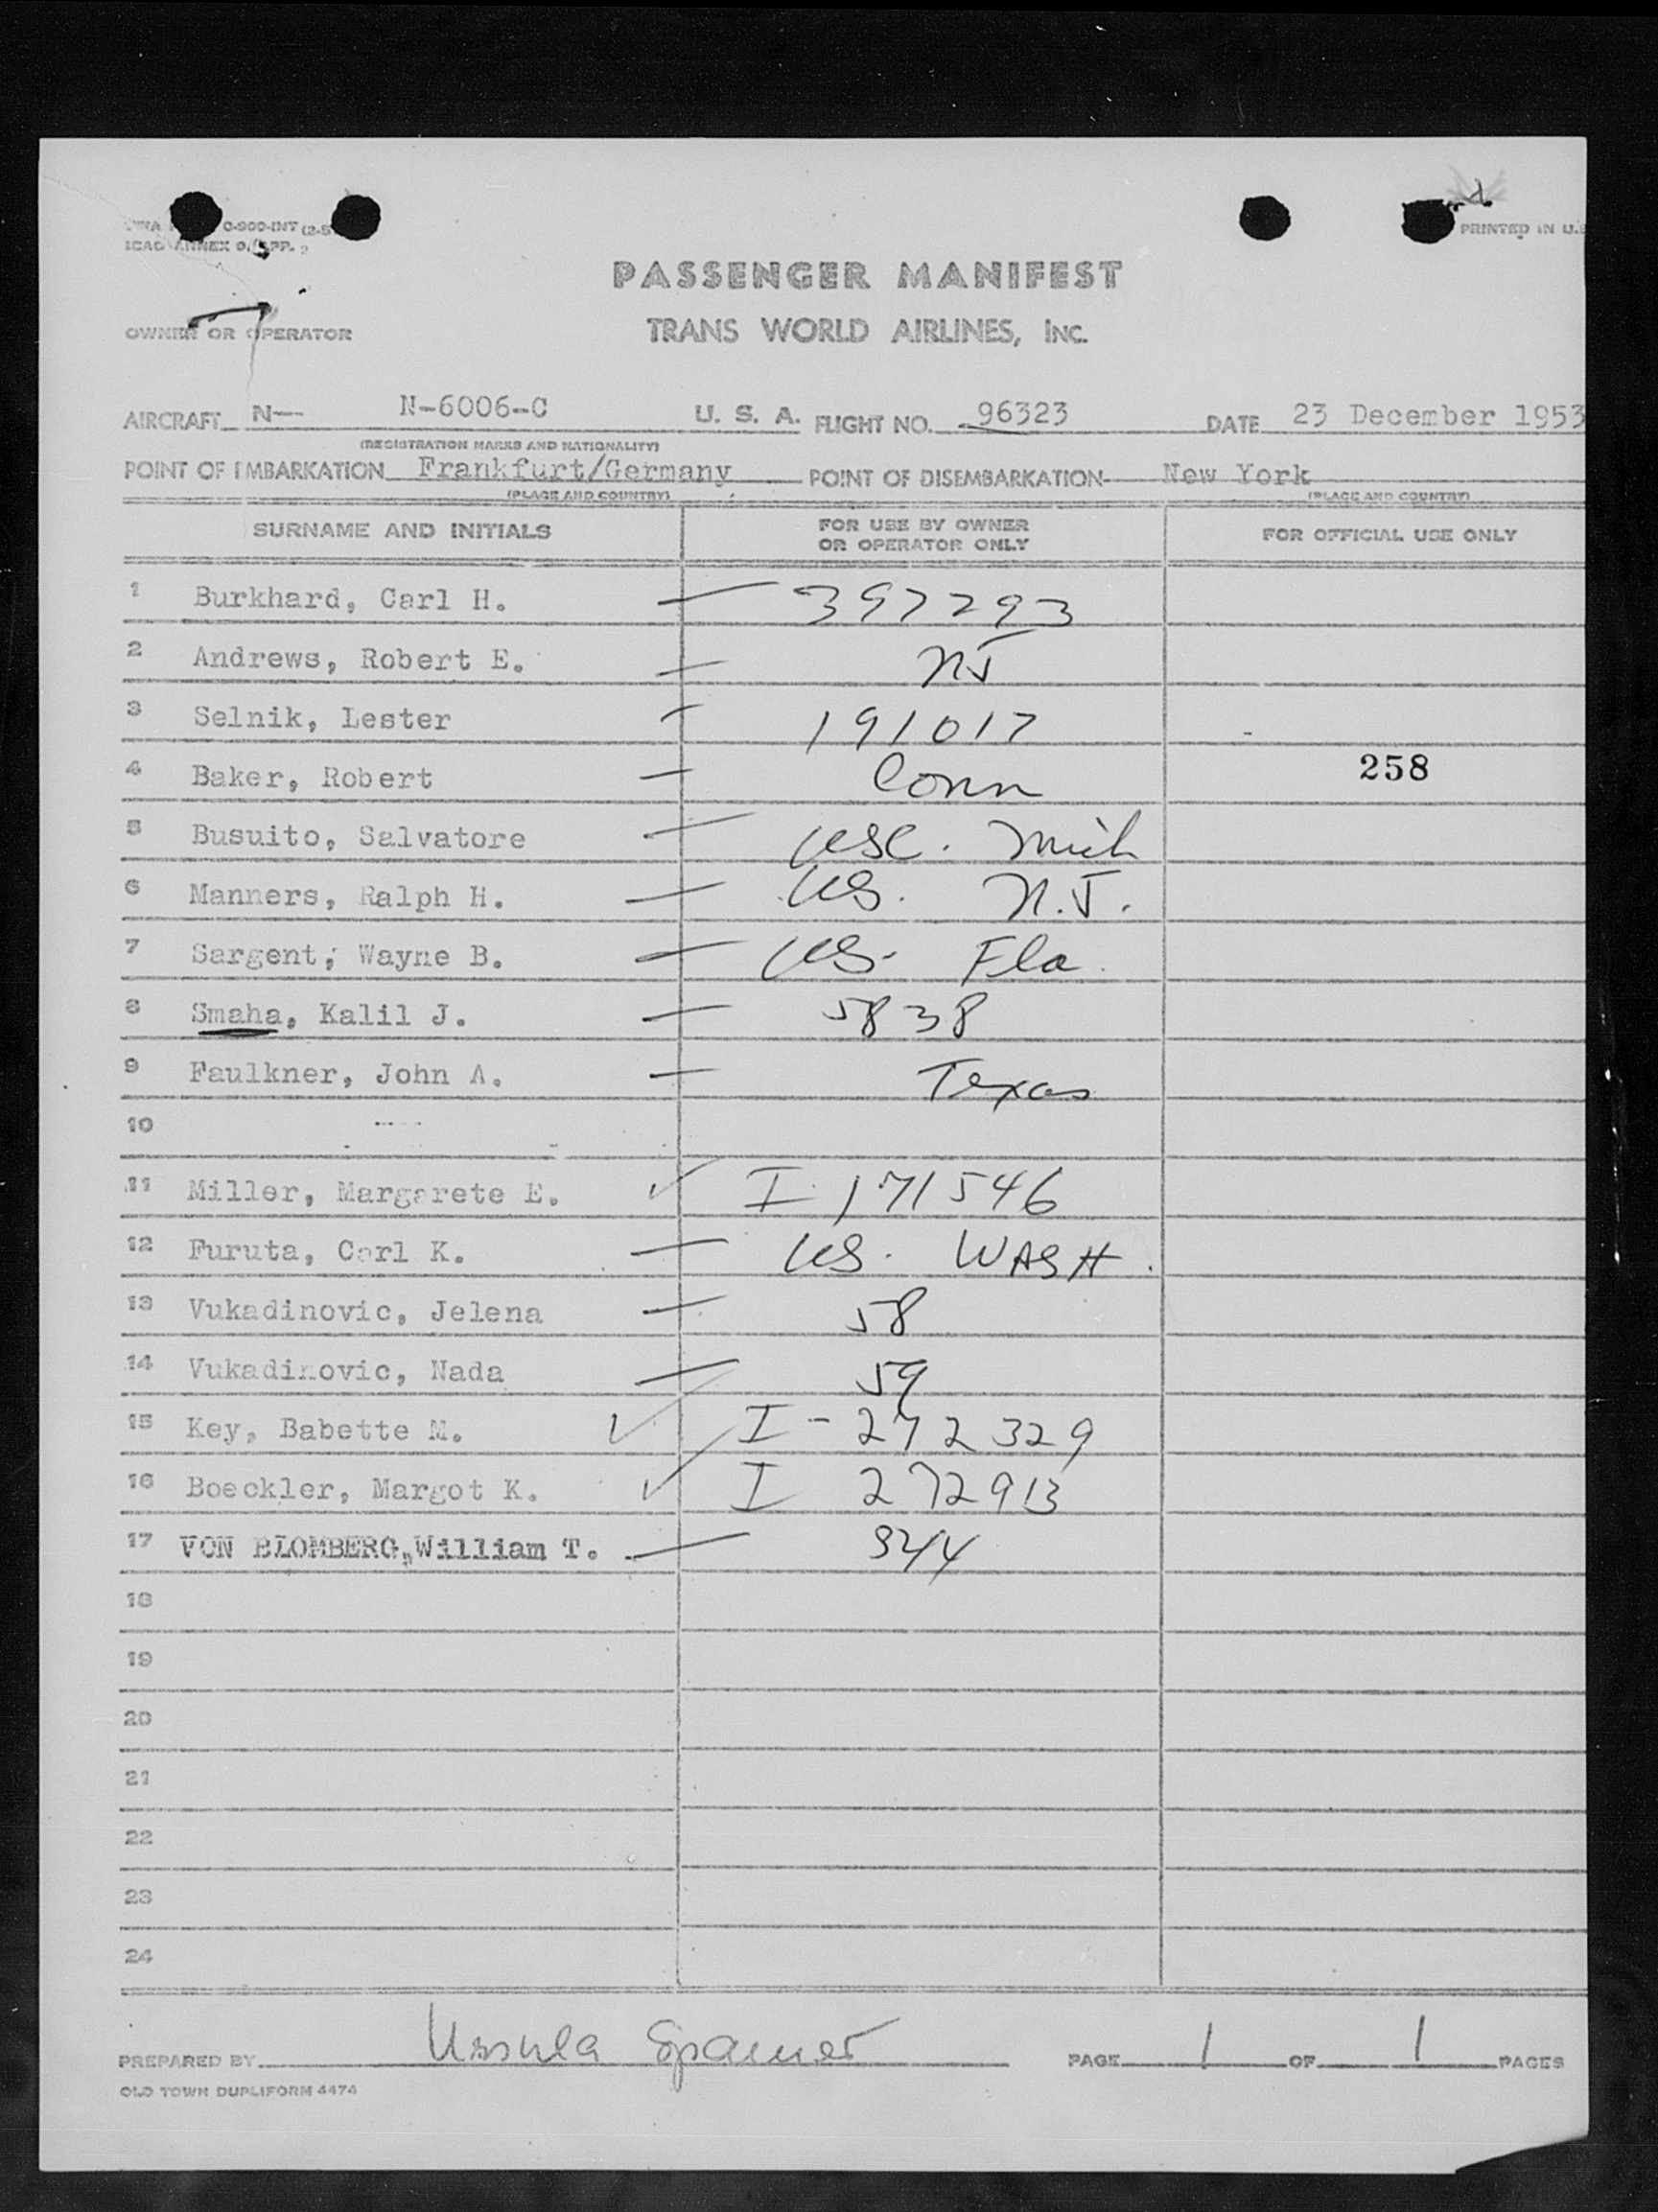 C-900-INT (2-5
ICAO ANNEX 9, (APP.
PRINTED IN U.S
PASSENGER MANIFEST
OWNER OR OPERATOR
TRANS WORLD AIRLINES, INC.
AIRCRAFT N— N-6006-C U. S. A. FLIGHT NO. 96323 DATE 23 December 1953
(REGISTRATION MARKS AND NATIONALITY)
POINT OF EMBARKATION Frankfurt/Germany POINT OF DISEMBARKATION New York
(PLACE AND COUNTRY) (PLACE AND COUNTRY)
SURNAME AND INITIALS FOR USE BY OWNER OR OPERATOR ONLY FOR OFFICIAL USE ONLY
1 Burkhard, Carl H. — 397293
2 Andrews, Robert E. — NJ
3 Selnik, Lester — 191017
4 Baker, Robert — Conn 258
5 Busuito, Salvatore — USC. Mich
6 Manners, Ralph H. — US. N.J.
7 Sargent, Wayne B. — US. Fla.
8 Smaha, Kalil J. — 5838
9 Faulkner, John A. — Texas
10
11 Miller, Margarete E. ✓ I 171546
12 Furuta, Carl K. — US. WASH.
13 Vukadinovic, Jelena — 58
14 Vukadinovic, Nada — 59
15 Key, Babette M. ✓ I - 272329
16 Boeckler, Margot K. ✓ I 272913
17 VON BLOMBERG, William T. — 9244
18
19
20
21
22
23
24
PREPARED BY Ursula Spamer PAGE 1 OF 1 PAGES
OLD TOWN DUPLIFORM 4474